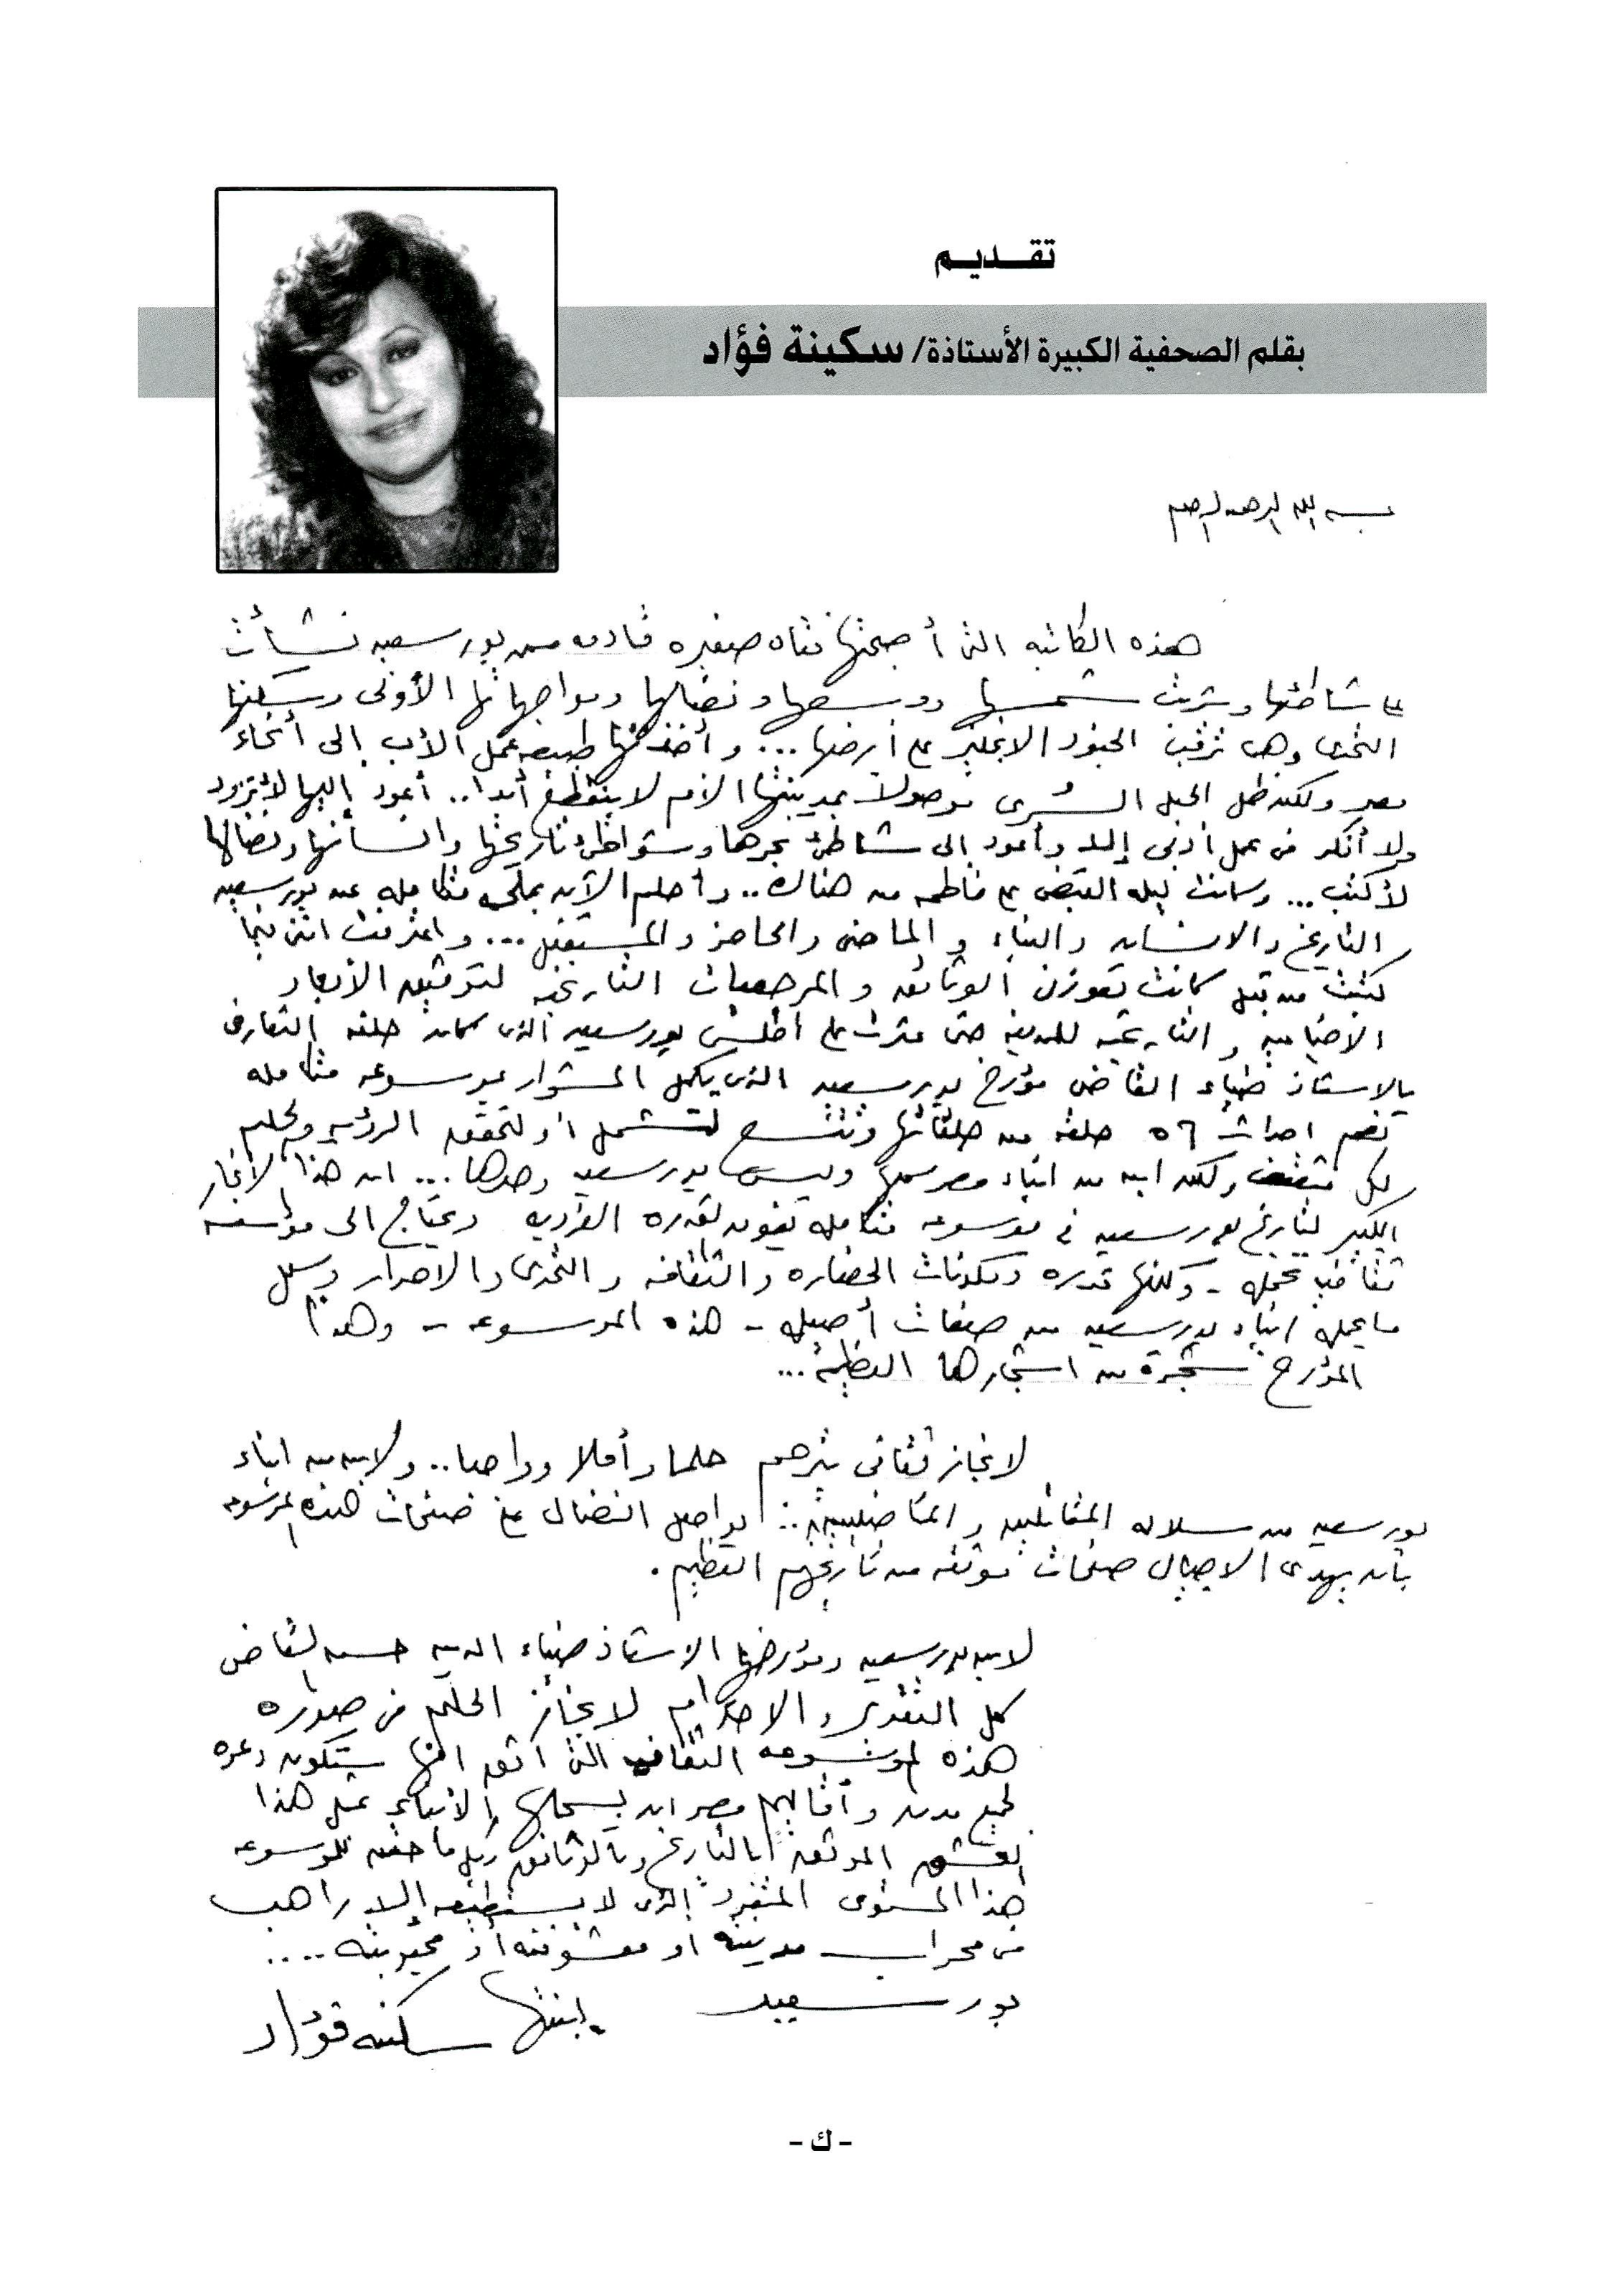 تقديم
بقلم الصحفية الكبيرة الأستاذة/ سكينة فؤاد
بسم الله الرحمن الرحيم
هذه الكاتبه التى أصبحتها فتاه صغيره قادمه من بورسعيد نشأت
على شاطئها وشربت شمسها ونضالها ومواجهاتها الأولى وسكنها
التحدى وهى ترقب الجنود الانجليز على أرضها ... وأخذتها طبيعه عمل الأب إلى أنحاء
مصر ولكن ظل الحبل السُرى موصولاً بمدينتها الأم لا ينقطع أبدا .. أعود إليها لأتزود
ولا أفكر فى عمل أدبى إلا وأعود إلى شاطئ بحرها وشواطئ تاريخها وانسانها ونضالها
لأكتب ... وكانت ليله القبض على فاطمه من هناك .. وأحلم الآن بملحمه متكامله عن بورسعيد
التاريخ والانسان والبناء والماضى والحاضر والمستقبل ... واعترفت اننى فيما
كتبت من قبل كانت تعوزنى الوثائق والمرجعيات التاريخيه لتوثيق الأبعاد
والتاريخيه للمدينه حتى عثرت على أطلس بورسعيد الذى كان حلقه التعارف
بالاستاذ ضياء القاضى مؤرخ بورسعيد الذى يكمل المشوار بموسوعه متكامله
تضم احداث ٥٦ حلقه من حلقاتها وتتسع لتشمل أو لتحقق الرؤيه والحلم
لكل مثقف ولكل ابن من ابناء مصر كلها وليس بورسعيد وحدها ... ان هذا الانجاز
الكبير لتاريخ بورسعيد فى موسوعه متكامله يفوق القدره الفرديه ويحتاج الى مؤسسه
ثقافيه تحمله - ولكنها قدره ومكونات الحضاره والثقافه والتحدى والاصرار وكل
ما يحمله ابناء بورسعيد من صفات أصيله - هذه الموسوعه - وهذا
المؤرخ شجرة من اشجارها العظيمة ...
لانجاز ثقافى يترجم حلما وأملا وواجبا .. ولابن من ابناء
بورسعيد من سلاله المقاتلين والمناضلين .. يواصل النضال على صفحات هذه الموسوعه
بأن يهدى الاجيال صفحات موثقه من تاريخهم العظيم .
لابن بورسعيد ومؤرخها الاستاذ ضياء الدين حسن القاضى
كل التقدير والاحترام لانجاز الحلم فى صوره
هذه الموسوعه الثقافيه التى أثق انها ستكون دعوه
لجميع مدن وأقاليم مصر ان يسجلها الأبناء بمثل هذا
العشق الموثق بالتاريخ وبالوثائق وكل ما حقق للموسوعه
هذا المستوى المتفرد الذى لا يستطيعه إلا راهب
فى محراب مدينته او معشوقته أو محبوبته ....
بورسعيد
إبنتها
سكينه فؤاد
- ك -